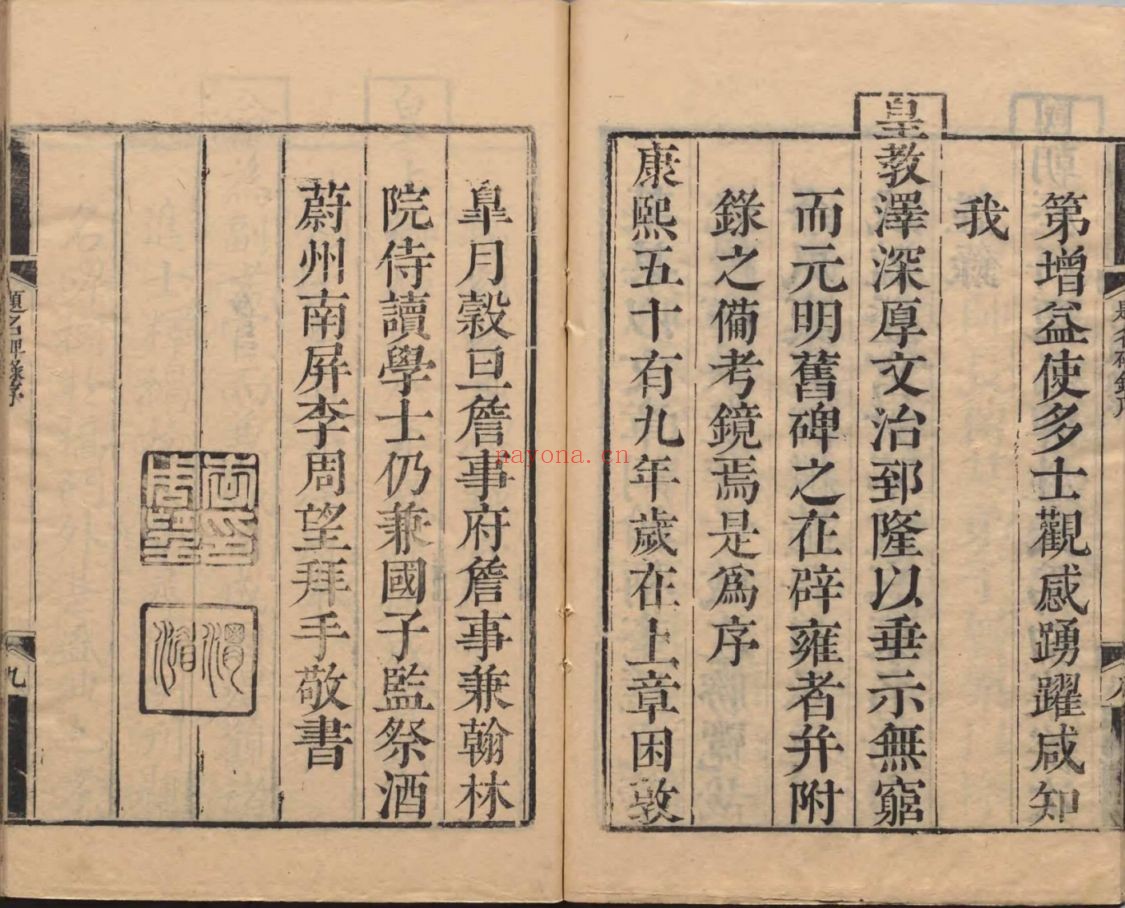 第增益使多士觀感踴躍咸知
我
皇教澤深厚文治郅隆以垂示無窮
而元明舊碑之在辟雍者并附
錄之俻考鏡焉是爲序
康熙五十有九年歲在上章困敦
皐月穀旦詹事府詹事兼翰林
院侍讀學士仍兼國子監祭酒
蔚州南屏李周望拜手敬書
題名碑錄序
九
nayona.cn